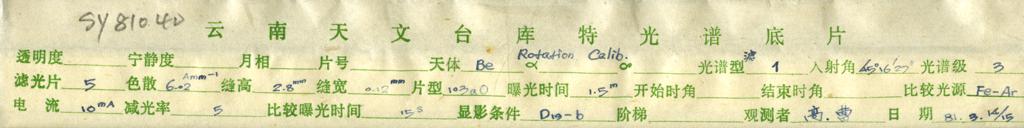 SY8104D
云南天文台库特光谱底片
透明度 宁静度 月相 片号 天体 Be Rotation Calib. α 光谱型 1 入射角 45°16'27" 光谱级 3
滤光片 5 色散 6.02 Åmm⁻¹ 缝高 2.8mm 缝宽 0.12mm 片型 103aO 曝光时间 1.5m 开始时角 结束时角 比较光源 Fe-Ar
电流 10mA 减光率 5 比较曝光时间 15s 显影条件 D19-6 阶梯 观测者 高.曹 日期 81.3.14/15